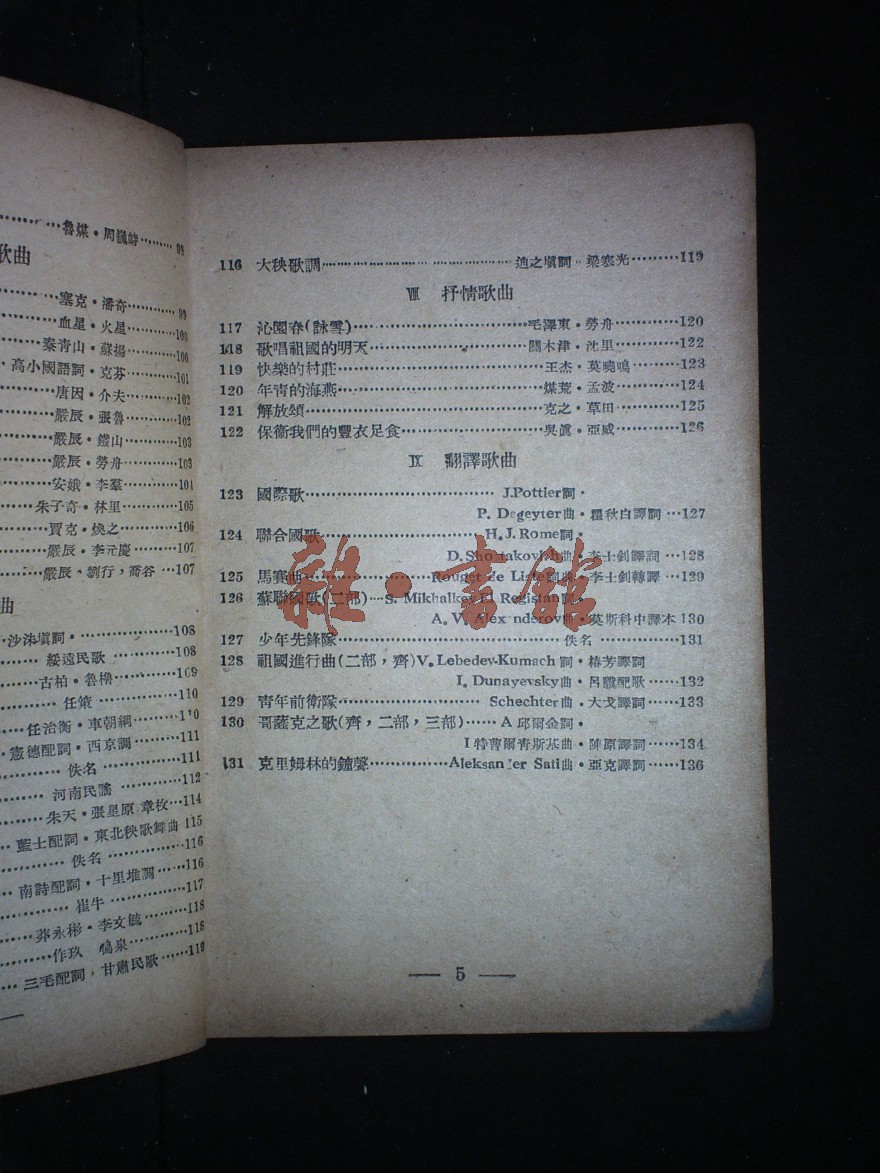 魯煤・周巍峙………98
歌曲
塞克・潘奇…………99
血星・火星…………100
秦青山・蘇揚…………100
高小國語詞・克芬………101
唐因・介夫…………102
嚴辰・張魯…………102
嚴辰・鐙山…………103
嚴辰・勞舟…………103
安娥・李羣…………104
朱子奇・林里…………105
賈克・煥之…………106
嚴辰・李元慶…………107
嚴辰・劉行，喬谷……107
曲
沙洙填詞・…………108
綏遠民歌…………108
古柏・魯橹…………109
任策…………110
任治衡・車朝綱………110
憲德配詞・西京調……111
佚名…………111
河南民謠…………112
朱天・張星原 章枚…114
藍士配詞・東北秧歌舞曲 115
佚名…………116
南詩配詞・十里堆調……116
崔牛…………117
茅永彬・李文毓………118
作玖 鳴泉…………118
三毛配詞・甘肅民歌……119
116 大秧歌調…………迪之填詞・梁寒光………119
Ⅷ 抒情歌曲
117 沁園春(詠雪)…………毛澤東・勞舟…………120
118 歌唱祖國的明天…………關木津・沈里…………122
119 快樂的村莊…………王杰・莫曉鳴…………123
120 年青的海燕…………煤荒・孟波…………124
121 解放頌…………克之・草田…………125
122 保衛我們的豐衣足食…………吳眞・亞威…………126
Ⅸ 翻譯歌曲
123 國際歌………… J.Pottier詞・
P. Degeyter曲・瞿秋白譯詞…127
124 聯合國歌………… H. J. Rome詞・
D. Shostakovich曲・李士釗譯詞…128
125 馬賽曲…………Rouget de Lisle詞曲・李士釗轉譯…129
126 蘇聯國歌(二部)…S. Mikhalkov El Registan詞・
A. V. Alexanderov曲・莫斯科中譯本 130
127 少年先鋒隊………… 佚名…………131
128 祖國進行曲(二部，齊)V. Lebedev-Kumach 詞・椿芳譯詞
I. Dunayevsky曲・呂驥配歌……132
129 青年前衛隊…………Schechter曲・大戈譯詞……133
130 哥薩克之歌(齊，二部，三部)……A 邱爾金詞・
I 特曹爾青斯基曲・陳原譯詞……134
131 克里姆林的鐘聲…………Aleksander Sati曲・亞克譯詞……136
雜・書館
— 5 —